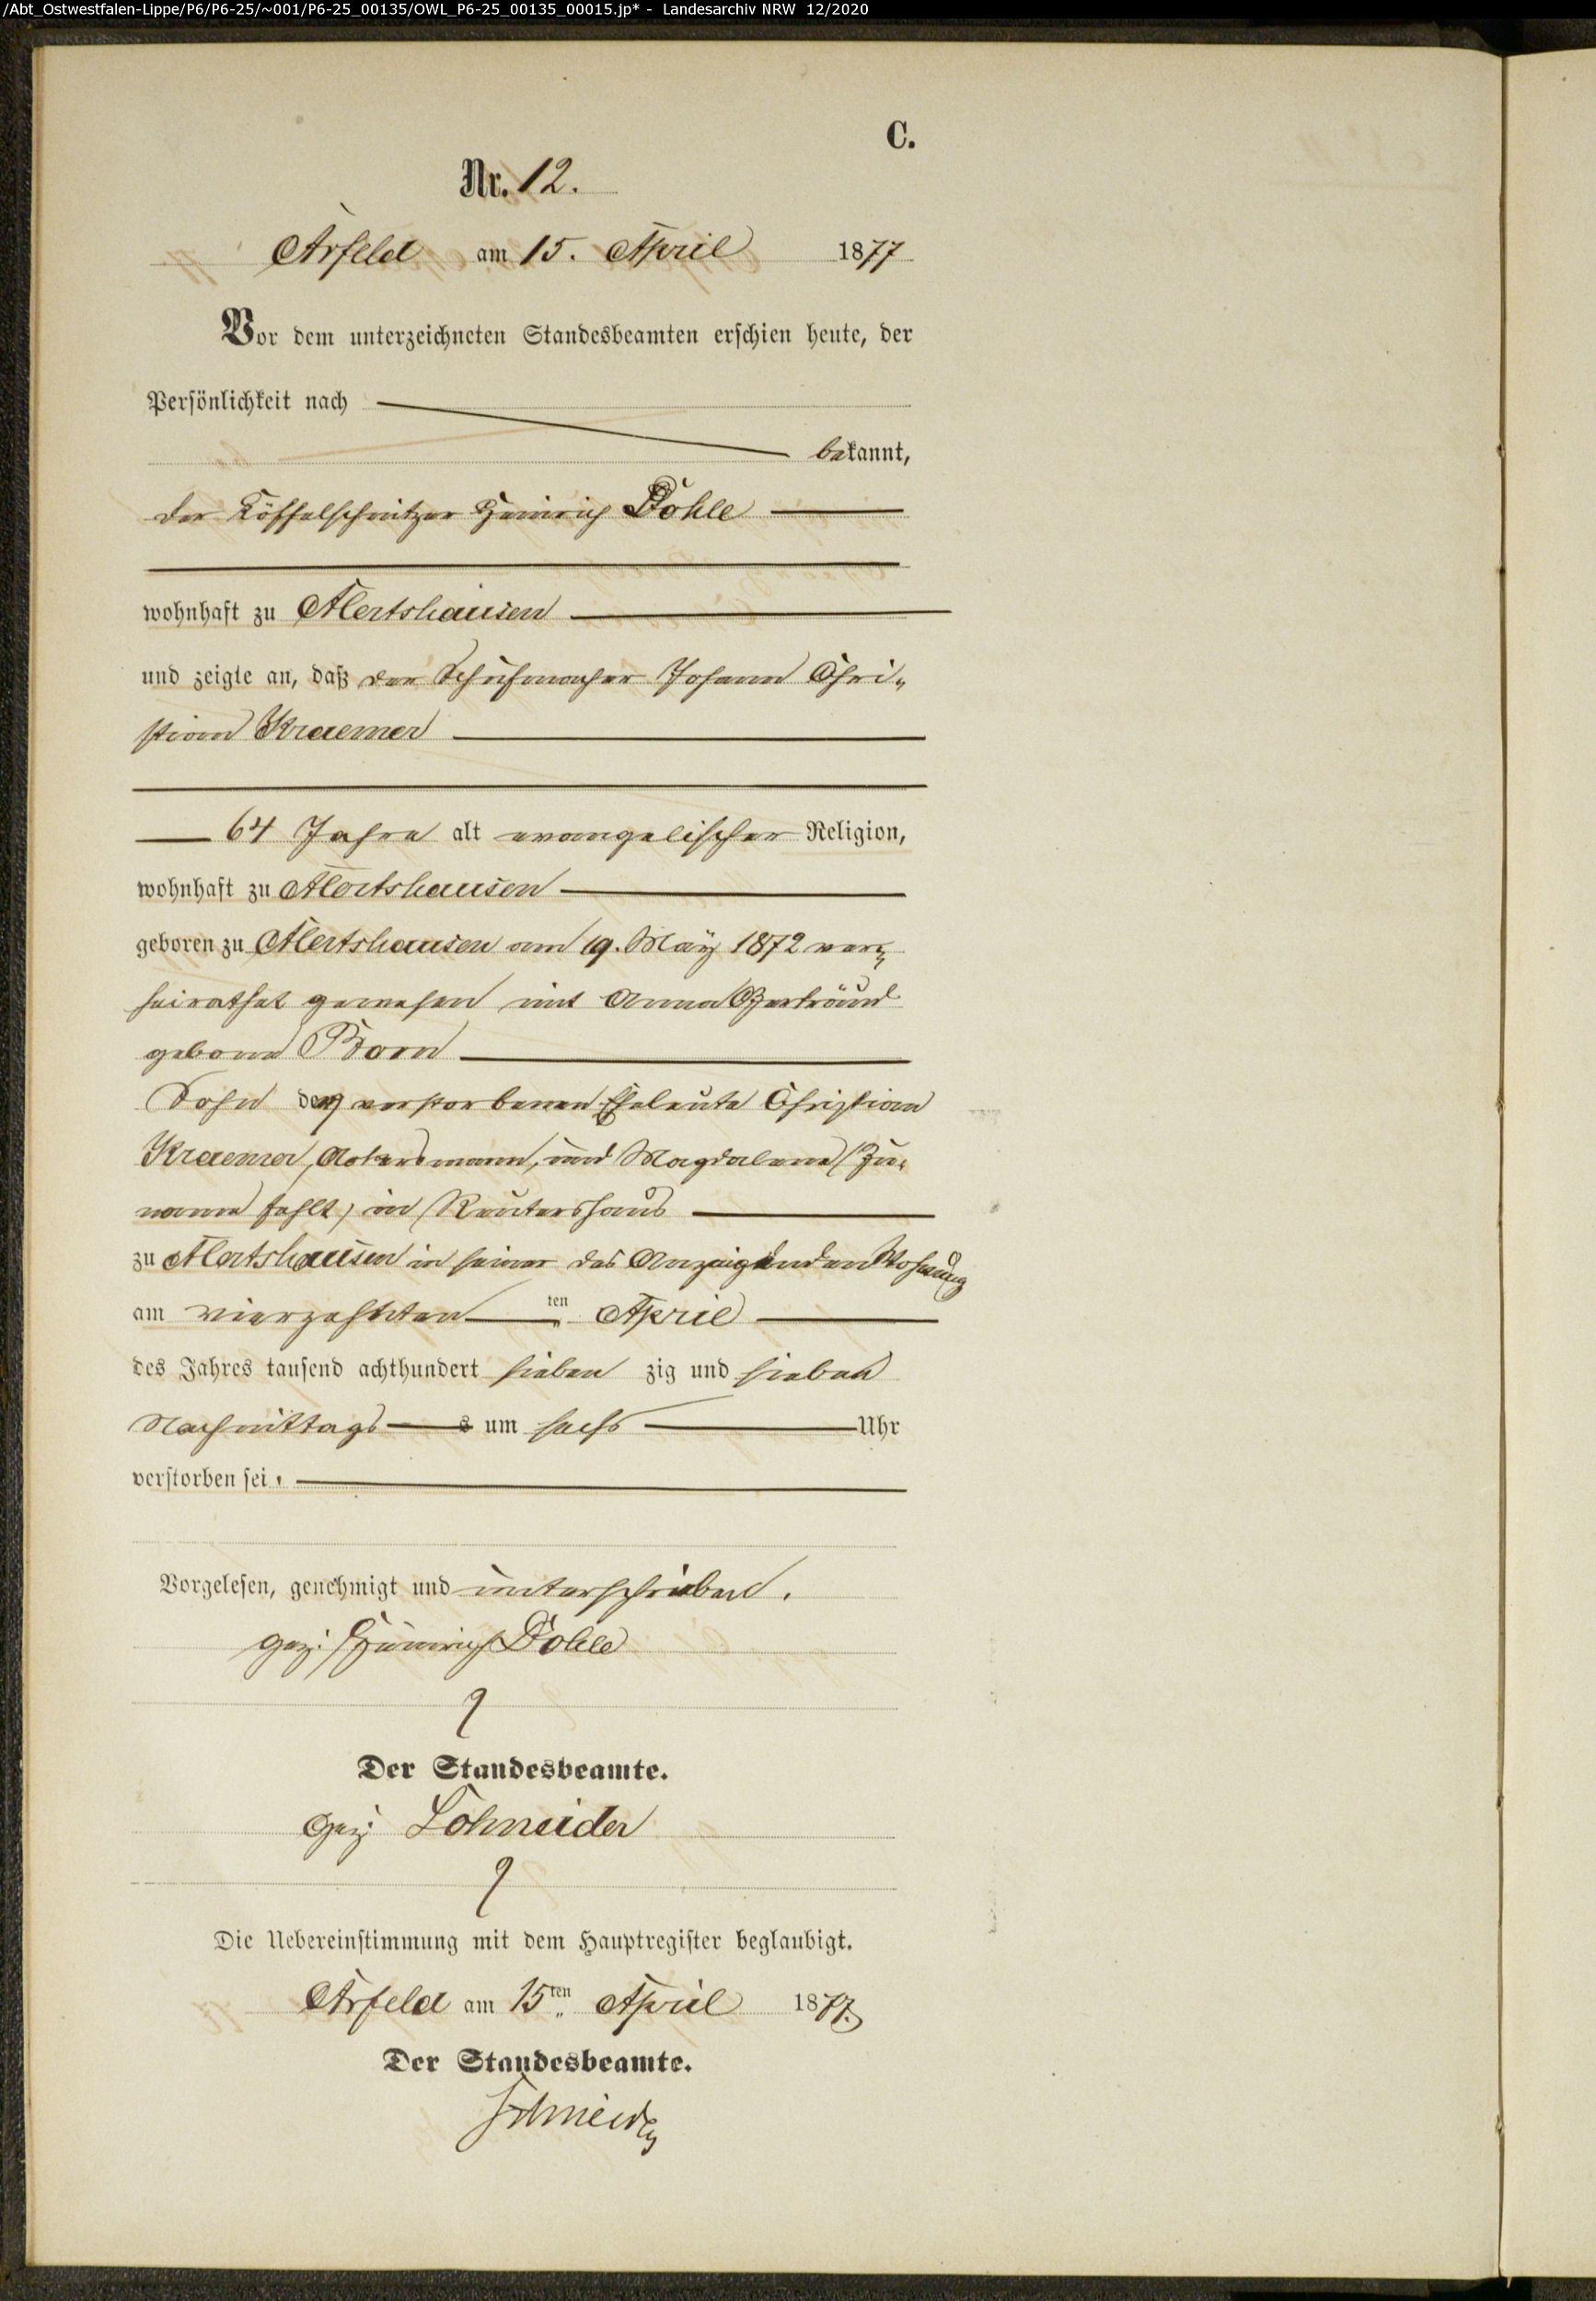 /Abt_Ostwestfalen-Lippe/P6/P6-25/~001/P6-25_00135/OWL_P6-25_00135_00015.jp* - Landesarchiv NRW 12/2020
C.
Nr. 12.
Arfeld am 15. April 1877
Vor dem unterzeichneten Standesbeamten erschien heute, der
Persönlichkeit nach
bekannt,
der Löffelschnitzer Heinrich Dohle
wohnhaft zu Alertshausen
und zeigte an, daß der Schuhmacher Johann Chri-
stian Kraemer
64 Jahre alt evangelischer Religion,
wohnhaft zu Alertshausen
geboren zu Alertshausen am 19. May 1872 ver-
heirathet gewesen mit Anna Gertraud
geborne Born
Sohn der verstorbenen Eheleute Christian
Kraemer, Ackersmann, und Magdalena (Zu-
name fehlt) in Reutershaus
zu Alertshausen in seiner des Anzeigenden Wohnung
am vierzehnten ten April
des Jahres tausend achthundert sieben zig und sieben
Nachmittags s um sechs Uhr
verstorben sei.
Vorgelesen, genehmigt und unterschrieben.
gez. Heinrich Dohle
Der Standesbeamte.
gez. Schneider
Die Uebereinstimmung mit dem Hauptregister beglaubigt.
Arfeld am 15ten April 1877.
Der Standesbeamte.
Schneider